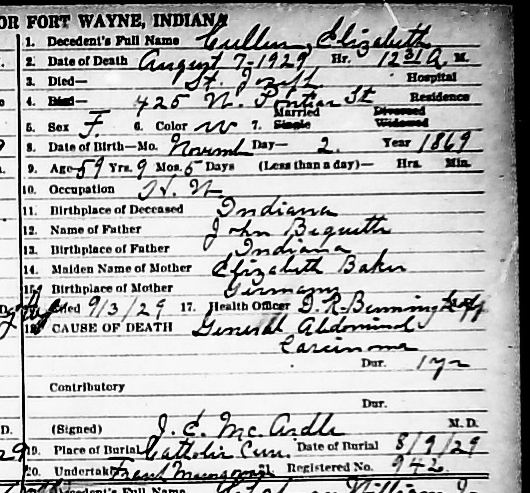 OR FORT WAYNE, INDIANA
1. Decedent's Full Name Cullen, Elizabeth
2. Date of Death August 7-1929 Hr. 12 31 A. M.
3. Died— St. Joseph Hospital
4. Died— 425 N. Pontiac St Residence
5. Sex F. 6. Color W 7. Married Single Divorced Widowed
8. Date of Birth—Mo. November Day— 2. Year 1869
9. Age 59 Yrs. 9 Mos. 5 Days (Less than a day)— Hrs. Min.
10. Occupation H. W
11. Birthplace of Deceased Indiana
12. Name of Father John
13. Birthplace of Father Indiana
14. Maiden Name of Mother Elizabeth Baker
15. Birthplace of Mother Germany
Filed 9/3/29 17. Health Officer D. R. Benninghoff
18. CAUSE OF DEATH General Abdominal
Carcinoma
Dur. 1 yr
Contributory
Dur.
D. (Signed) J. E. Mc Ardle M. D.
29 19. Place of Burial Catholic Cem. Date of Burial 8/9/29
20. Undertaker Frank 21. Registered No. 942
Decedent's Full Name William J.